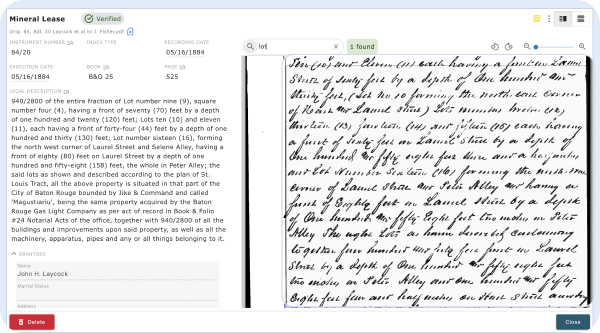 Mineral Lease
Verified
Orig. 84, Bdl. 20 Laycock et al to J. Fisher.pdf
INSTRUMENT NUMBER
INDEX TYPE
RECORDING DATE
84/20
05/16/1884
EXECUTION DATE
BOOK
PAGE
05/16/1884
B&O 25
525
LEGAL DESCRIPTION
940/2800 of the entire fraction of Lot number nine (9), square
number four (4), having a front of seventy (70) feet by a depth
of one hundred and twenty (120) feet; Lots ten (10) and eleven
(11), each having a front of forty-four (44) feet by a depth of one
hundred and thirty (130) feet; Lot number sixteen (16), forming
the north west corner of Laurel Street and Selene Alley, having a
front of eighty (80) feet on Laurel Street by a depth of one
hundred and fifty-eight (158) feet, the whole in Peter Alley; the
said lots as shown and described according to the plan of St.
Louis Tract, all the above property is situated in that part of the
City of Baton Rouge bounded by Jike & Command and called
'Magustiariu', being the same property acquired by the Baton
Rouge Gas Light Company as per act of record in Book & Folio
#24 Notarial Acts of the office, together with 940/2800 of all the
buildings and improvements upon said property, as well as all the
machinery, apparatus, pipes and any or all things belonging to it.
GRANTORS
Name
John H. Laycock
Marital Status
Address
Delete
lot
1 found
Ten (10) and Eleven (11) each having a front on Laurel
Street of Sixty feet by a depth of One hundred and
thirty feet, (Lot No 10 forming the north east corner
of and Laurel Street) Lots number twelve (12),
thirteen (13) fourteen (14) and fifteen (15) each having
a front of Sixty feet on Laurel Street by a depth of
One hundred and fifty eight feet three and a half inches
and Lot Number Sixteen (16) forming the north west
corner of Laurel Street and Peter Alley and having a
front of Eighty feet on Laurel Street by a depth
of One hundred and fifty Eight feet two inches on Peter
Alley The eight Lots as herein described containing
together four hundred and fifty feet front on Laurel
Street by a depth of One hundred and fifty eight feet
two inches on Peter Alley and One hundred and fifty
Eight feet four and half inches on Street
Close